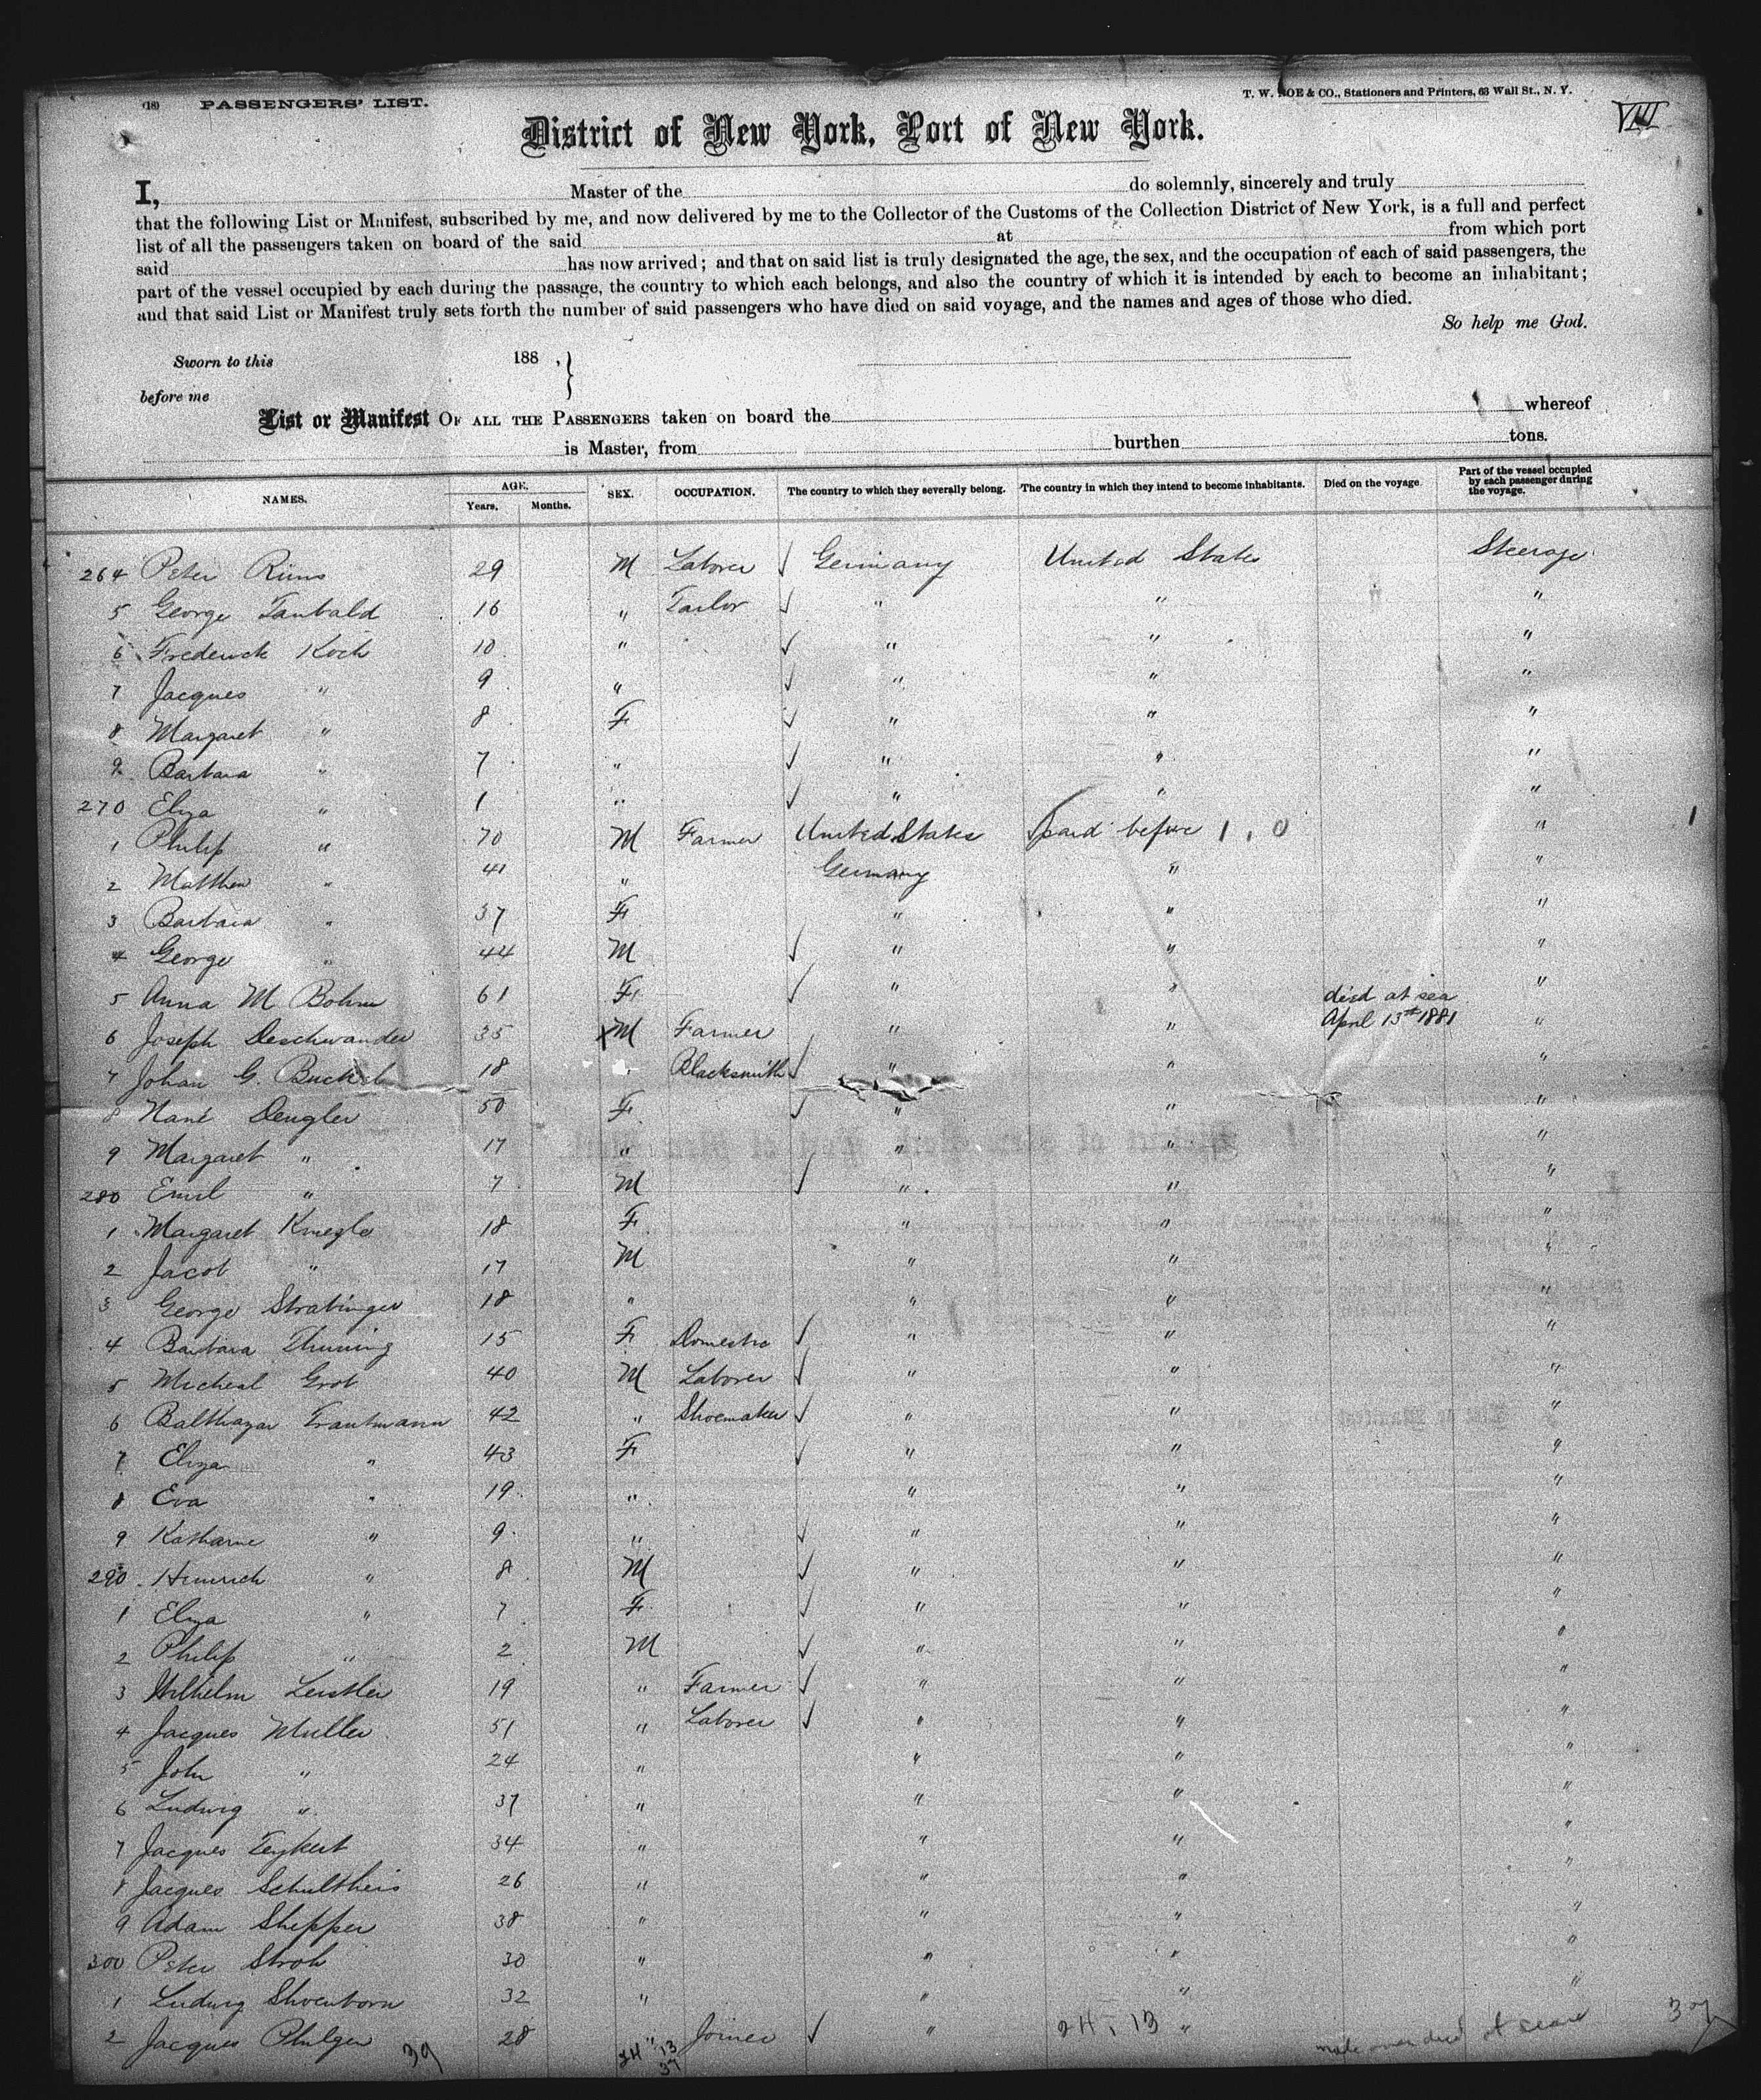 (18) PASSENGERS' LIST.
T. W. ROE & CO., Stationers and Printers, 63 Wall St., N. Y.
VIII
District of New York, Port of New York.
I, Master of the do solemnly, sincerely and truly
that the following List or Manifest, subscribed by me, and now delivered by me to the Collector of the Customs of the Collection District of New York, is a full and perfect
list of all the passengers taken on board of the said at from which port
said has now arrived; and that on said list is truly designated the age, the sex, and the occupation of each of said passengers, the
part of the vessel occupied by each during the passage, the country to which each belongs, and also the country of which it is intended by each to become an inhabitant;
and that said List or Manifest truly sets forth the number of said passengers who have died on said voyage, and the names and ages of those who died.
So help me God.
Sworn to this 188 , }
before me
List or Manifest OF ALL THE PASSENGERS taken on board the whereof
is Master, from burthen tons.
NAMES. AGE. Years. Months. SEX. OCCUPATION. The country to which they severally belong. The country in which they intend to become inhabitants. Died on the voyage. Part of the vessel occupied by each passenger during the voyage.
264 Peter Rims 29 M Laborer √ Germany United States Steerage
5 George Taubald 16 " Tailor √ " " "
6 Frederick Koch 10 " √ " " "
7 Jacques " 9 " √ " " "
8 Margaret " 8 F √ " " "
9 Barbara " 7 " √ " " "
270 Elyza " 1 " √ " " "
1 Philip " 70 M Farmer United States paid before 1 . 0 " 1
2 Matthew " 41 " Germany " "
3 Barbara " 37 F " " "
4 George " 44 M √ " " "
5 Anna M Bohm 61 F √ " " died at sea "
6 Joseph Deschwander 35 X M Farmer " " April 13th 1881 "
7 Johan G. Buckel 18 Blacksmith √ " " "
8 Nané Dengler 50 F √ " " "
9 Margaret " 17 " " " "
280 Emil " 7 M √ " " "
1 Margaret 18 F " " "
2 Jacob " 17 M " " "
3 George Strabinger 18 " " " "
4 Barbara 15 F Domestic √ " " "
5 Micheal Grob 40 M Laborer √ " " "
6 Balthazar Trautmann 42 " Shoemaker √ " " "
7 Elyza " 43 F √ " " "
8 Eva " 19 " " " "
9 Katharine " 9 " √ " " "
290 Heinrich " 8 M √ " " "
1 Elyza " 7 F √ " " "
2 Philip " 2 M √ " " "
3 Wilhelm Leistler 19 " Farmer √ " " "
4 Jacques Muller 51 " Laborer √ " " "
5 John " 24 " " " "
6 Ludwig " 37 " " " "
7 Jacques 34 " " " "
8 Jacques Schultheis 26 " " " "
9 Adam Shepper 38 " " " "
300 Peter Stroh 30 " " " "
1 Ludwig Shoenborn 32 " " " "
2 Jacques 28 " Joiner √ " 24 . 13 "
39 24 13 37 37